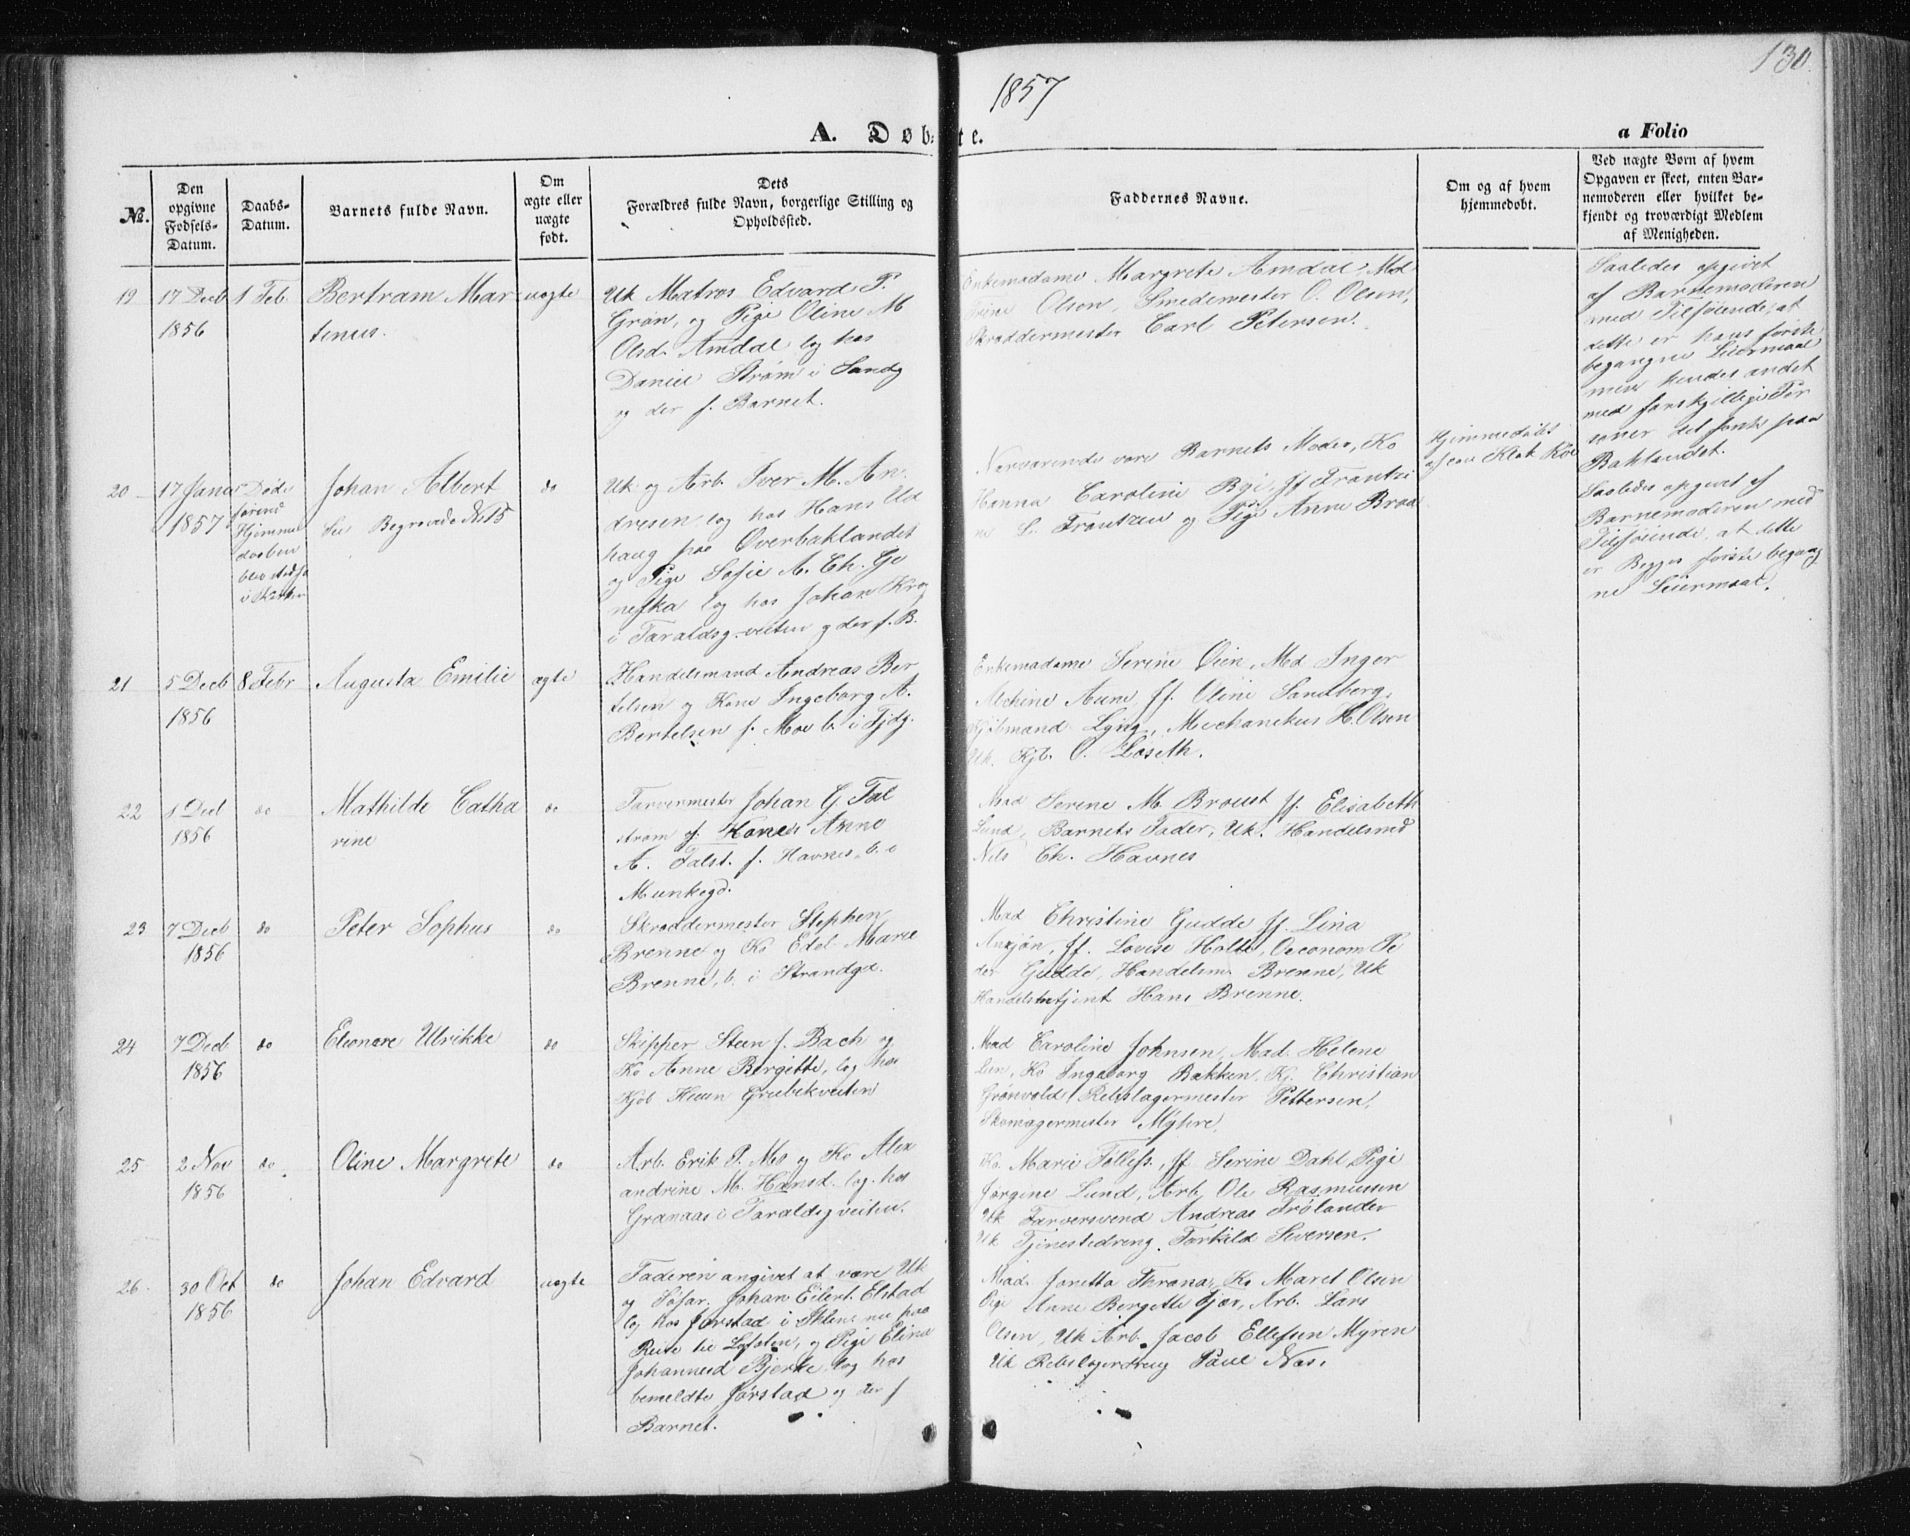 130.
1857
A. Døbte.
a Folio
No.
Den opgivne Fødsels-Datum.
Daabs-Datum.
Barnets fulde Navn.
Om ægte eller uægte født.
Dets Forældres fulde Navn, borgerlige Stilling og Opholdssted.
Faddernes Navne.
Om og af hvem hjemmedøbt.
Ved uægte Børn af hvem Opgaven er skeet, enten Barnemoderen eller hvilket bekjendt og troværdigt Medlem af Menigheden.
19 17 Decb 1856
1 Feb.
Bertram Mar-
tenius.
uægte
Uk Matros Edvard P.
Grøn, og Pige Oline M
Olsd. Amdal log hos
Daniel Strøm i Sandg
og der f. Barnet.
Enkemadame Margrete Amdal, Mad
Trine Olsen, Smedemester O. Olsen,
Skræddermester Carl Petersen.
Saaledes opgivet
af Barnemoderen
med Tilføiende, at
dette er hans første
begangne Leiermaal
men hendes andet
med forskjellige Per
soner det første paa
Baklandet.
20 17 Janr 1857
Død
forend
Hjemme
daaben
blev stadf
i Kirken
Johan Albert
See Begravede No 15
do
Uk og Arb. Iver M. An
dresen log hos Hans Ud
haug paa Øverbaklandet
og Pige Sofie A. Ch. Ge
nefka log hos Johan Krog
i Taraldsg-veiten og der f. B.
Nærværende vare Barnets Moder, Ko
Hanna Caroline Bye, Jf Frantzi
ne L. Frantzen og Pige Anne Braa
Hjemmedøbt
af cand. Klok Roe
Saaledes opgivet af
Barnemoderen med
Tilføiende, at dette
er Begges første begang
ne Leiermaal.
21 5 Decb 1856
8 Febr
Augusta Emilie
ægte
Handelsmand Andreas Ber
telsen og Kone Ingeborg A.
Bertelsen f. Moe b. i Fjdg.
Enkemadame Serine Øien, Md Inger
Alchine Aune Jf. Oline Sandberg,
Kjøbmand Lyng, Mechanikus H. Olsen
Uk. Kjb. O. Løseth.
22 1 Decb 1856
do
Mathilde Catha
rine
do
Farvermester Johan G. Fal
strøm og Kone Anne
A. Falst. f. Havnes, b. i
Munkegd.
Mad Serine M. Broust Jf. Elisabeth
Lund, Barnets Fader, Uk. Handelsmd
Nils Ch. Havnes
23 7 Decb 1856
do
Peter Sophus
do
Skræddermester Stephen
Brenne og Ko Edel Marie
Brenne, b. i Strandgd.
Mad Christine Gudde Jf. Lina
Anzjøn, Jf. Lovise Holte, Oeconom Pe
der Gudde, Handelsm. Brenne, Uk
Handelsbetjent Hans Brenne.
24 7 Decb 1856
do
Eleonore Ulrikke
do
Skipper Steen J. Bach og
Ko Anne Birgitte, log hos
Kjøb Huun Grubbekveiten
Mad Caroline Johnsen, Mad. Helene
Lien, Ko Ingeborg Bakken, Kj. Christian
Grønvold, Rebslagermester Pettersen,
Skomagermester Myhre.
25 2 Nov 1856
do
Oline Margrete
do
Arb. Erik P. Moe og Ko Alex
andrine M. Hansd. log. hos
Granaas i Taraldsgveiten.
Ko. Marie Tollefs., Jf. Serine Dahl, Pige
Jørgine Lund, Arb. Ole Rasmussen
Uk Farversvend Andreas Frølander
Uk Tjenestedreng Torkild Siversen.
26. 30 Oct 1856
do
Johan Edvard
uægte
Faderen angivet at være Uk
og Søfar. Johan Eilert Elstad
log hos Jørstad i Ihlen, nu paa
Reise til Lofoten, og Pige Elina
Johannesd Bjerke log hos
bemeldte Jørstad og der f
Barnet.
Mad. Jonetta Thronæs, Ko Maret Olsen
Pige Anne Bergitte Fjær, Arb. Lars
Olsen, Uk Arb. Jacob Ellefsen Myren
Uk Rebslagerdreng Paul Næs.